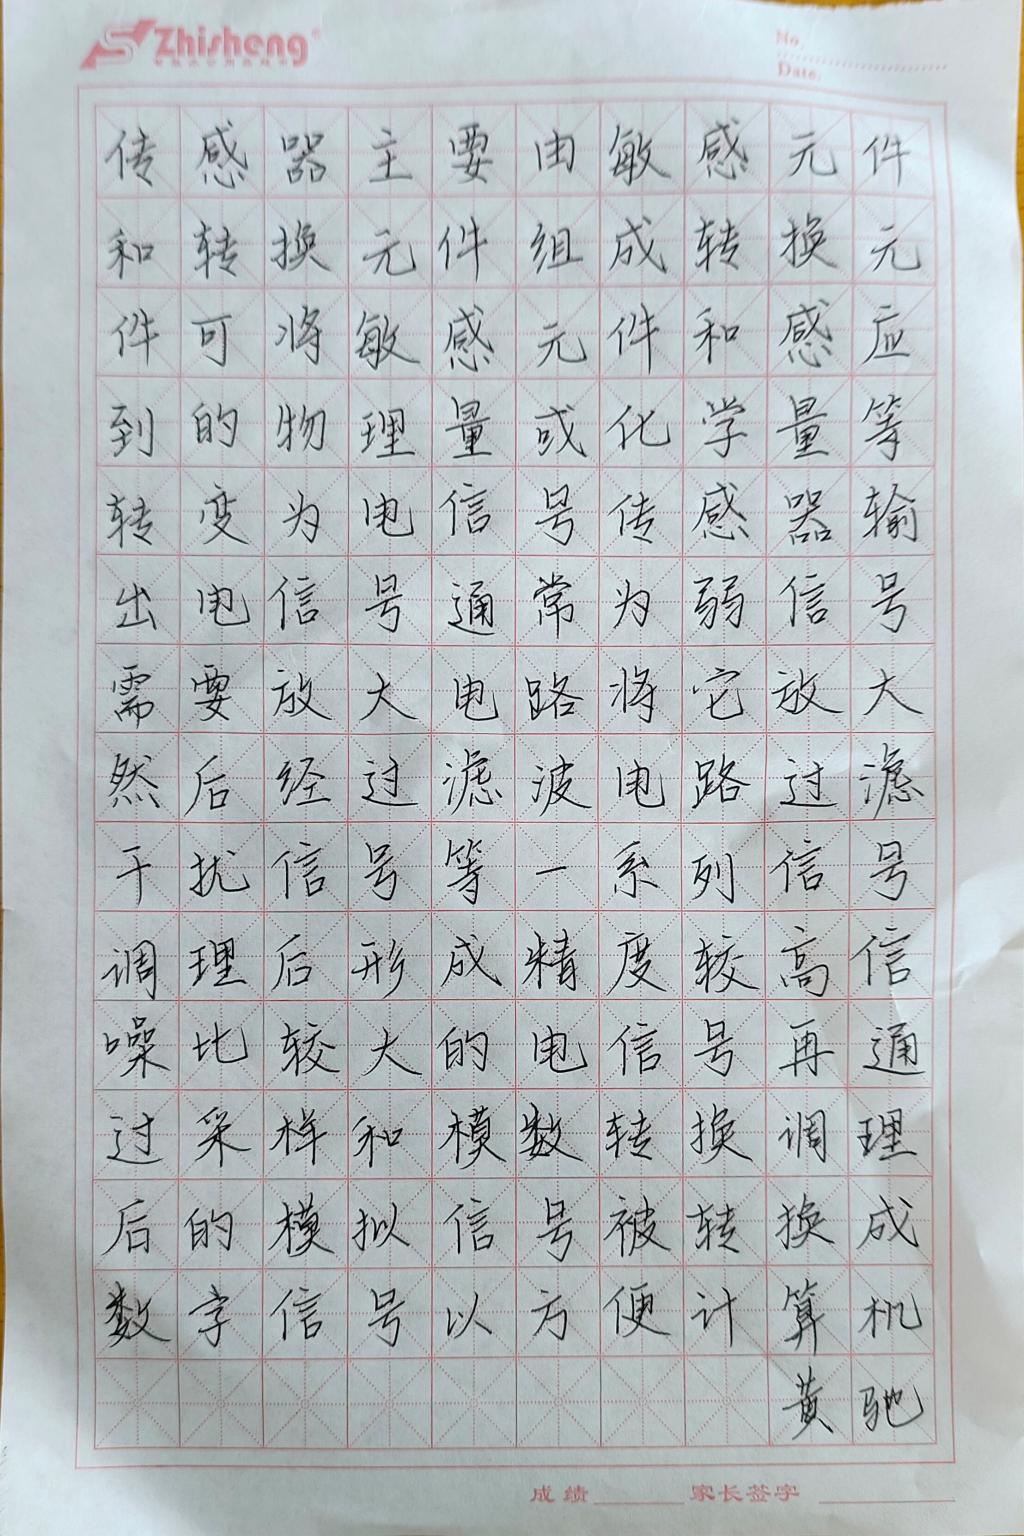 Zhisheng
No.
Date.
传感器主要由敏感元件
和转换元件组成转换元
件可将敏感元件和感应
到的物理量或化学量等
转变为电信号传感器输
出电信号通常为弱信号
需要放大电路将它放大
然后经过滤波电路过滤
干扰信号等一系列信号
调理后形成精度较高信
噪比较大的电信号再通
过采样和模数转换调理
后的模拟信号被转换成
数字信号以方便计算机
黄驰
成绩 家长签字